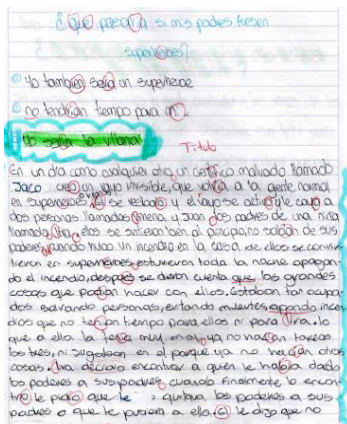 ¿Que pasaria si mis padres fuesen
superheroes?
① Yo tambien sería un superheroe
② no tendrían tiempo para mi.
Yo sería la villana
Titulo
En un día como cualquier otro, un científico malvado llamado
Jaco creó un rayo invisible, que volvía a la gente normal
en superheroes, el se resbaló y el rayo se activó, le cayó a
dos personas llamadas Jimena y Juan dos padres de una niña
llamada ellos se sintieron bien al principio, no sabían de sus
poderes, cuando hubo un incendio en la casa de ellos se convir
tieron en superheroes, estuvieron toda la noche apagan
do el incendio, después se dieron cuenta que las grandes
cosas que podían hacer con ellos. Estaban tan ocupa
dos salvando personas, evitando muertes, apagando incen
dios que no tenían tiempo para ellos ni para lira. lo
que a ella la tenía muy enojada, ya no hacían tareas
los tres, ni jugaban en el parque ya no hacían otras
cosas. decidió encontrar a quien le había dado
los poderes a sus padres, cuando finalmente lo encon
tró le pidió que le quitara los poderes a sus
padres o que le pusiera a ella, el le dijo que no